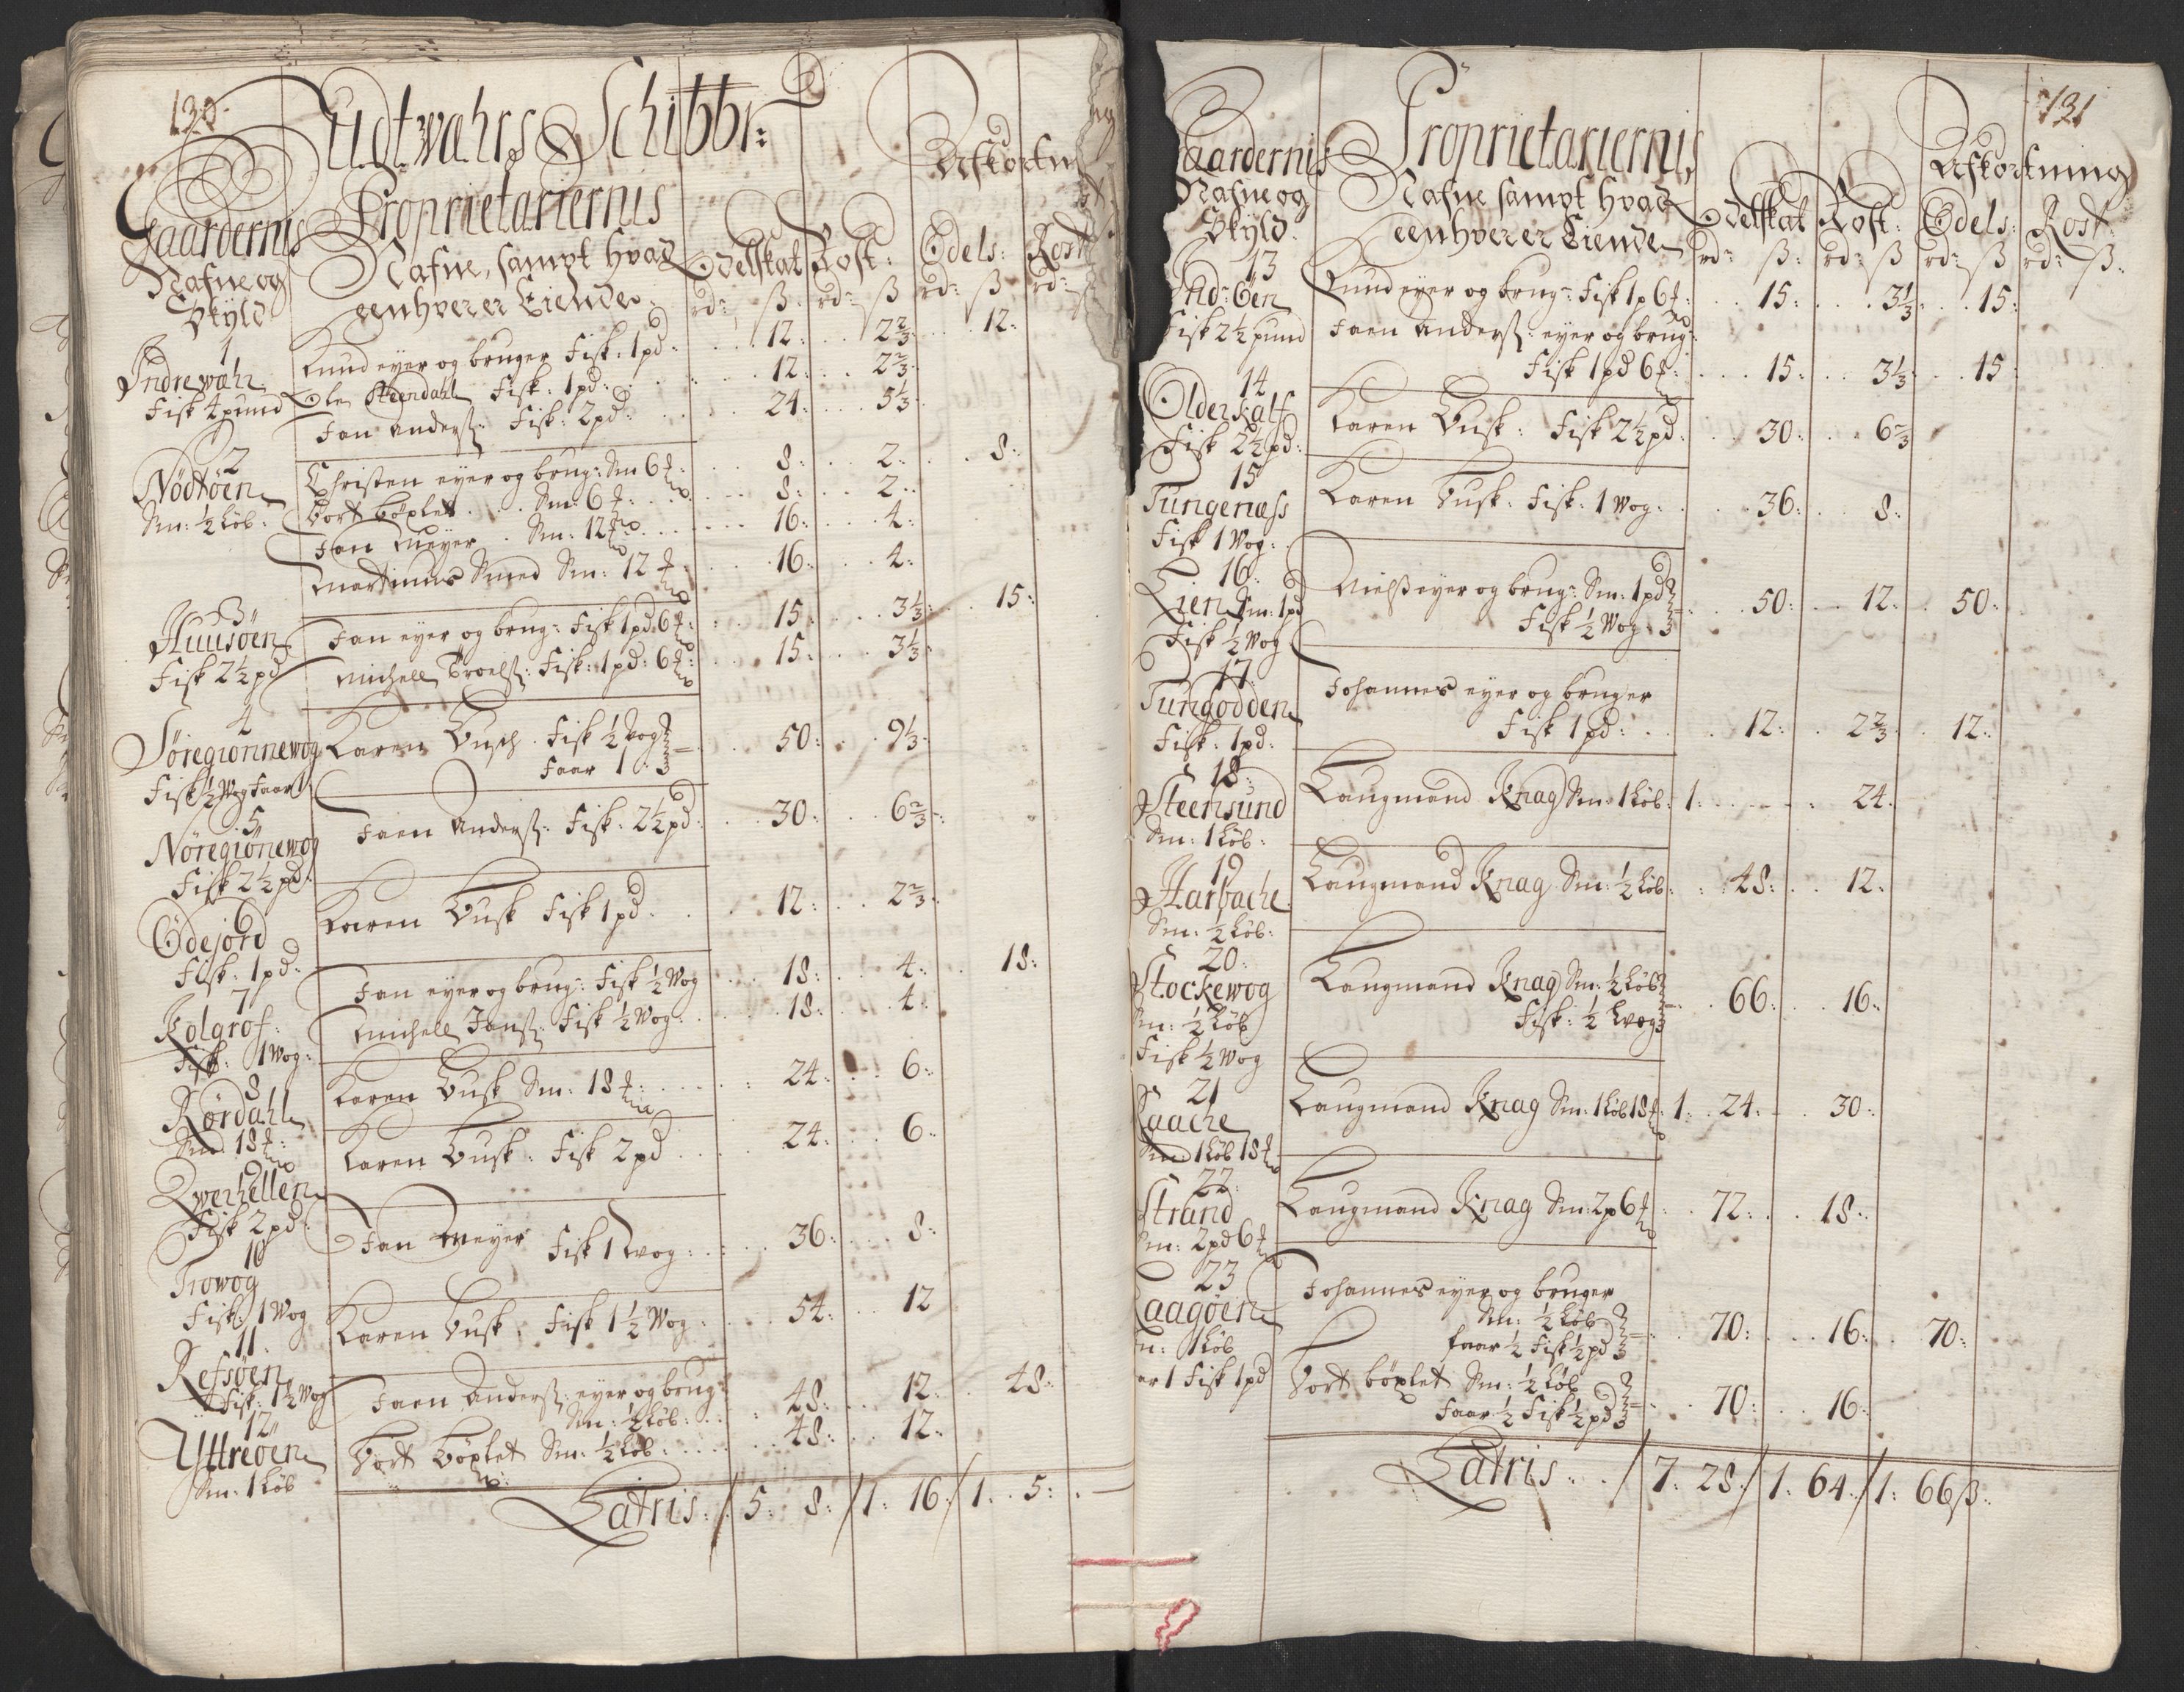 130.
Udtwahrs Schibbr:
Gaardernis
Nafne og
Skyld
Proprietariernis
Nafne, sampt hvad
eenhver er Eiende
Odelskat
rd: ß.
Rost:
rd: ß
Afkortn
Odels:
rd: ß
Rost
rd:
1
Indrewahr
Fisk 4 pund
Knud eyer og bruger Fisk. 1 pd: 12: 2 2/3 12:
Ole Steendahl Fisk: 1 pd: 12: 2 2/3
Jan Anderß: Fisk: 2 pd: 24: 5 1/3
2
Nödtöen
Sm: ½ Löb:
Christen eyer og brug: Sm 6 8: 2: 8:
Vort böxlet Sm: 6 8: 2:
Jan Meyer Sm: 12 16: 4:
Martinus Smed Sm: 12 16: 4:
3
Huusöen
Fisk 2½ pd
Jan eyer og brug: Fisk 1 pd 6 15: 3 1/3: 15:
Michell Troelß: Fisk: 1 pd: 6 15: 3 1/3
4
Söregionnewog
Fisk ½ Wog Faar 1
Karen Busch. Fisk ½ Wog
Faar 1 50: 9 1/3
5
Nöregionewog
Fisk 2½ pd:
Jaen Anderß: Fisk: 2½ pd: 30: 6 2/3
6
Ödejord
Fisk: 1 pd:
Karen Busk Fisk 1 pd 12: 2 2/3
7
Kolgrof
Fisk: 1 Wog:
Jan eyer og brug: Fisk ½ Wog 18: 4: 18:
Michell Janß: Fisk ½ Wog: 18: 4:
8
Rördahl
Sm: 18
Karen Busk Sm: 18 24: 6:
9
Qwerhellen
Fisk 2 pd:
Karen Busk: Fisk 2 pd 24: 6:
10
Trowog
Fisk: 1 Wog
Jan Meyer Fisk 1 Wog: 36: 8:
11.
Refsöen
Fisk: 1½ Wog
Karen Busk, Fisk 1½ Wog 54: 12
12
Yttreöen
Sm: 1 Löb
Jaen Anderß: eyer og brug:
Sm: ½ Löb: 48: 12: 48:
Vort Böxlet Sm: ½ Löb: 48: 12:
Latris: / 5: 8: / 1: 16: / 1: 5:
131
aardernis
Nafne og
Skyld.
Proprietariernis
Nafne sampt hvad
eenhver er Eiende
Odelskat
rd: ß:
Rost:
rd: ß
Afkortning
Odels:
rd: ß
Rost
rd: ß.
13
Ind: Öen
Fisk 2½ pund
Knud eyer og brug: Fisk 1 p 6 15: 3 1/3 15:
Jaen Anderß: eyer og brug:
Fisk 1 pd 6 15: 3 1/3 15
14
Olderkalf
Fisk 2½ pd:
Karen Busk: Fisk 2½ pd: 30: 6 2/3
15
Tungenæss
Fisk 1 Wog:
Karen Busk: Fisk: 1 Wog: 36: 8:
16:
Lien Sm: 1 pd
Fisk ½ Wog
Nielß eyer og brug: Sm: 1 pd
Fisk ½ Wog: 50: 12: 50:
17
Tungodden
Fisk: 1 pd:
Johannes eyer og bruger
Fisk 1 pd: 12: 2 2/3 12:
18:
Steensund
Sm: 1 Löb:
Laugmand Knag Sm: 1 Löb: 1: 24:
19
Harbache
Sm: ½ Löb:
Laugmand Knag Sm: ½ Löb: 48: 12:
20:
Stockewog
Sm: ½ Löb
Fisk ½ Wog
Laugmand Knag Sm: ½ Löb
Fisk: ½ Wog 66: 16:
21
Kaache
Sm: 1 Löb 18
Laugmand Knag Sm: 1 Löb 18 1: 24: 30:
22:
Strand
Sm: 2 pd 6
Laugmand Knag Sm: 2 p 6 72: 18:
23
aagöen
m: 1 Löb
ar 1 Fisk 1 pd
Johannes eyer og bruger
Sm: ½ Löb
faar ½ Fisk ½ pd 70: 16: 70:
Vort böxlet Sm: ½ Löb
Faar ½ Fisk ½ pd 70: 16:
Latris: / 7: 28: / 1: 64: / 1: 66 ß: